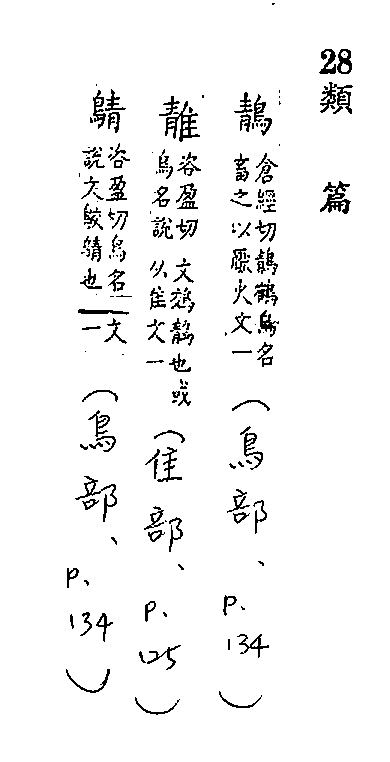 28
類篇
鶄
倉經切鶄鶴鳥名
畜之以厭火文一
(鳥部、P.134)
咨盈切
鳥名說
文鵁鶄也或
从隹文一
(隹部、P.125)
咨盈切鳥名
說文鵁鶄也
文
一
(鳥部、P.134)